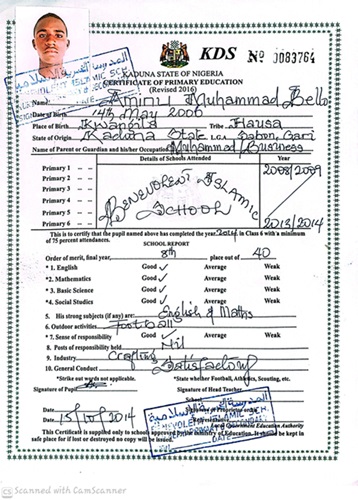 KDS No 0083764
KADUNA STATE OF NIGERIA
CERTIFICATE OF PRIMARY EDUCATION
(Revised 2016)
Name Aminu Muhammad Bello
14th May 2000
Place of Birth Kwangila Tribe Hausa
State of Origin Kaduna State L.G.A Sabon Gari
Name of Parent or Guardian and his Occupation Muhammad Business
Details of Schools Attended Year
Primary 1 2008/2009
Primary 2
Primary 3 BENEVOLENT ISLAMIC
Primary 4 SCHOOL
Primary 5
Primary 6 2013/2014
This is to certify that the pupil named above has completed the year 2014 in Class 6 with a minimum
of 75 percent attendances.
SCHOOL REPORT
Order of merit, final year, 8th place out of 40
* 1. English Good ✓ Average Weak
*2. Mathematics Good ✓ Average Weak
* 3. Basic Science Good ✓ Average Weak
*4. Social Studies Good ✓ Average Weak
5. His strong subjects (if any) are: English & Maths
6. Outdoor activities Football
*7. Sense of responsibility Good ✓ Average Weak
8. Posts of responsibility held Nil
9. Industry Crafting
10. General Conduct Satisfactory
*Strike out words not applicable. *State whether Football, Athletics, Scouting, etc.
Signature of Pupil Signature of Head Teacher
Date 15/10/2014 Date
Local Government Education Authority
This Certificate is supplied only to schools approved by the ministry of Education. It should be kept in
safe place for if lost or destroyed no copy will be issued.
Scanned with CamScanner